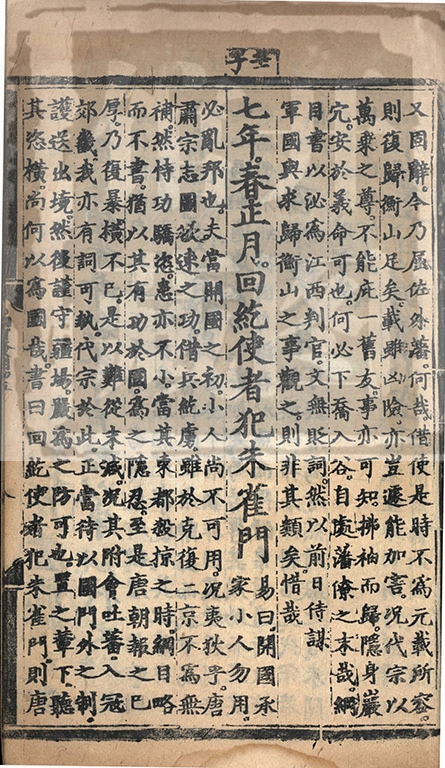 又固辭。今乃屈佐外藩。何哉。借使是時不爲元載所容。
則復歸衡山足矣。載雖凶險。亦豈遽能加害。况代宗以
萬乗之尊。不能庇一舊友。事亦可知。拂袖而歸。隱身巖
穴。安於義命可也。何必下喬入谷。自處藩僚之末哉。綱
目書以泌爲江西判官。文無貶詞。然以前日待謀
軍國與求歸衡山之事觀之。則非其類矣。惜哉
七年。春正月。回紇使者犯朱雀門
易曰。開國承
家。小人勿用。
必亂邦也。夫當開國之初。小人尚不可用。况夷狄乎。唐
肅宗志圖欲速之功。借兵紇虜。雖於克復二京。不爲無
補。然恃功驕恣。患亦不小。當其東都殺掠之時。綱目略
而不書。猶以其有功於國。爲之隱忍。至是唐朝報之已
厚。乃復暴横不已。是以難從末減。况其附會吐蕃。入冦
郊畿。我亦有詞可執。代宗於此。正當待以國門外之制。
護送出境。然後謹守疆場。嚴爲之防可也。置之輦下。聽
其恣横。尚何以爲國哉。書曰回紇使者犯朱雀門。則唐